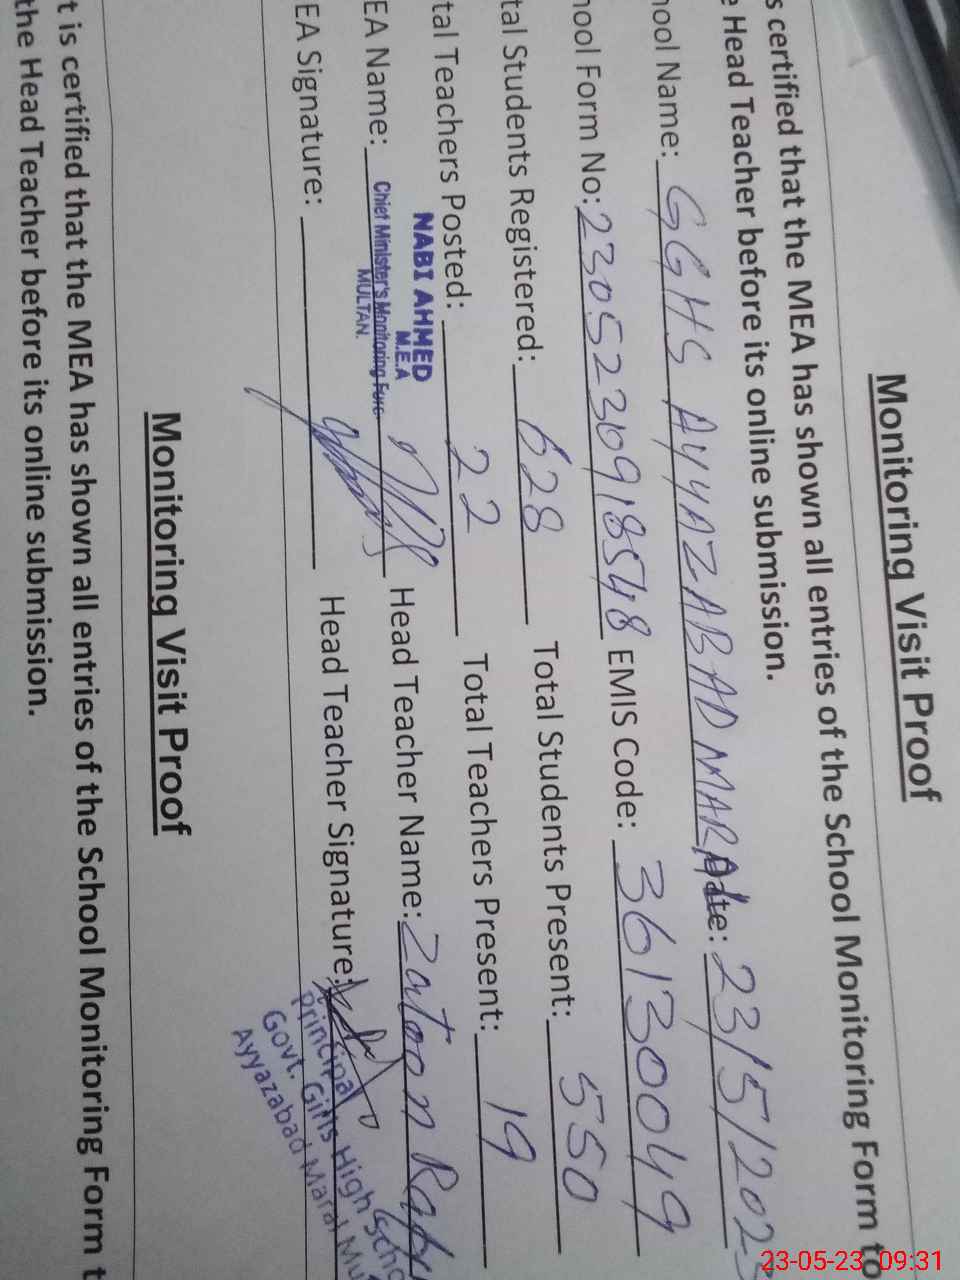 Monitoring Visit Proof
s certified that the MEA has shown all entries of the School Monitoring Form to
e Head Teacher before its online submission.
ool Name: GGHS AYYAZABAD MARAL Date: 23/5/202
ool Form No: 2305230918548 EMIS Code: 36130049
tal Students Registered: 628 Total Students Present: 550
tal Teachers Posted: 22 Total Teachers Present: 19
EA Name: NABI AHMED Head Teacher Name: Zatoon
M.E.A
Chief Minister's Monitoring Forc
MULTAN.
EA Signature: Head Teacher Signature:
Principal
Govt. Girls High Scho
Ayyazabad Maral Mu
Monitoring Visit Proof
t is certified that the MEA has shown all entries of the School Monitoring Form t
the Head Teacher before its online submission.
23-05-23 09:31